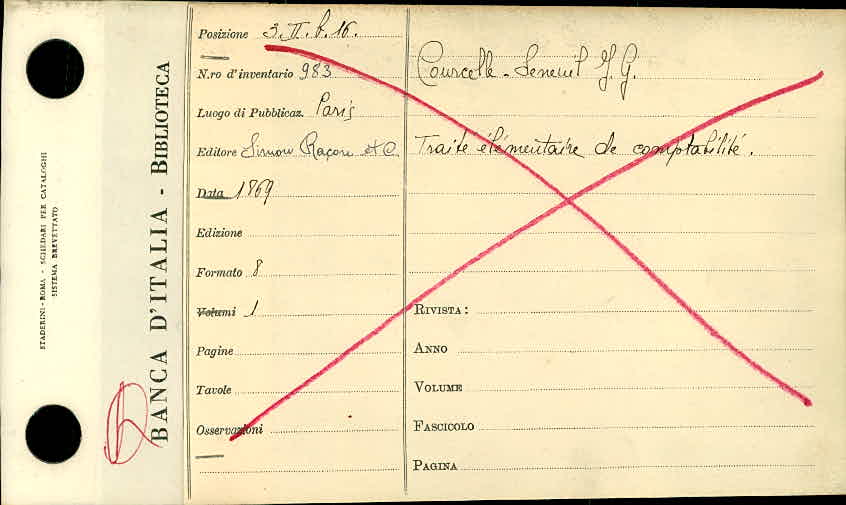 STADERINI - ROMA - SCHEDARI PER CATALOGHI
SISTEMA BREVETTATO
BANCA D'ITALIA - BIBLIOTECA
Posizione 3.II.b.16.
N.ro d'inventario 983
Luogo di Pubblicaz. Paris
Editore Simon Raçon et C
Data 1869
Edizione
Formato 8
Volumi 1
Pagine
Tavole
Osservazioni
Courcelle-Seneuil J. G.
Traité élémentaire de comptabilité.
RIVISTA:
ANNO
VOLUME
FASCICOLO
PAGINA